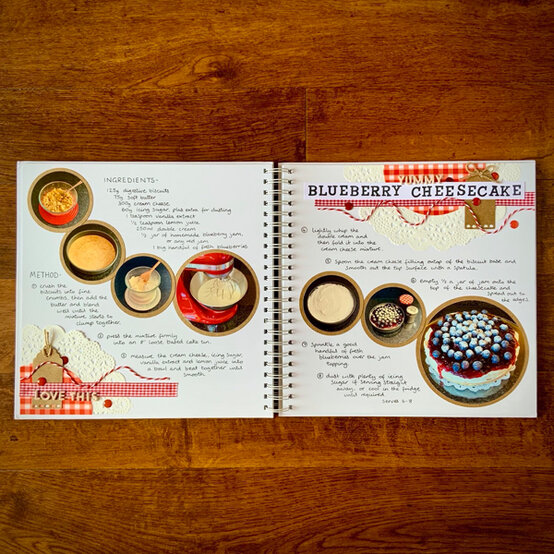 INGREDIENTS-
125g digestive biscuits
75g soft butter
300g cream cheese
60g icing sugar, plus extra for dusting
1 teaspoon vanilla extract
½ teaspoon lemon juice
250ml double cream
½ jar of homemade blueberry jam,
or any red jam
1 big handful of fresh blueberries
METHOD-
① crush the
biscuits into fine
crumbs, then add the
butter and blend
well until the
mixture starts to
clump together.
② press the mixture firmly
into an 8" loose based cake tin.
③ measure the cream cheese, icing sugar,
vanilla extract and lemon juice into
a bowl and beat together until
smooth.
LOVE THIS
YUMMY
BLUEBERRY CHEESECAKE
④ lightly whip the
double cream and
then fold it into the
cream cheese mixture.
⑤ Spoon the cream cheese filling ontop of the biscuit base and
smooth out the top surface with a spatula.
⑥ empty ½ a jar of jam onto the
top of the cheesecake and
spread out to
the edges.
⑦ Sprinkle a good
handful of fresh
blueberries over the jam
topping.
⑧ dust with plenty of icing
sugar if serving straight
away, or cool in the fridge
until required.
Serves 6-8